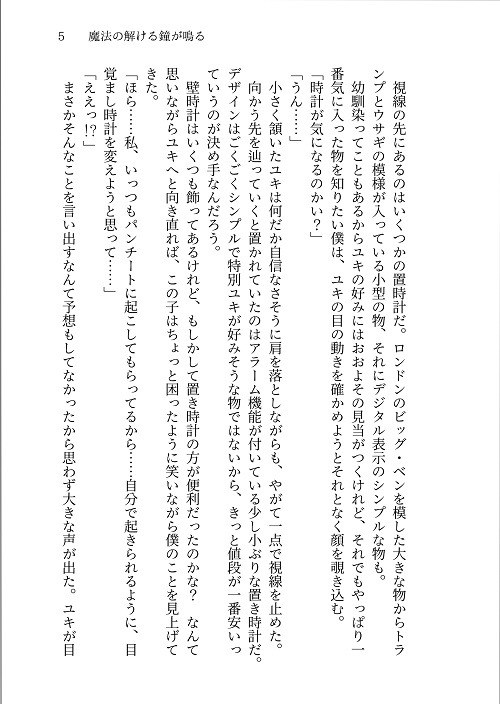 5　魔法の解ける鐘が鳴る
　視線の先にあるのはいくつかの置時計だ。ロンドンのビッグ・ベンを模した大きな物からトラ
ンプとウサギの模様が入っている小型の物、それにデジタル表示のシンプルな物も。
　幼馴染ってこともあるからユキの好みにはおおよその見当がつくけれど、それでもやっぱり一
番気に入った物を知りたい僕は、ユキの目の動きを確かめようとそれとなく顔を覗き込む。
「時計が気になるのかい？」
「うん……」
　小さく頷いたユキは何だか自信なさそうに肩を落としながらも、やがて一点で視線を止めた。
　向かう先を辿っていくと置かれていたのはアラーム機能が付いている少し小ぶりな置き時計だ。
デザインはごくごくシンプルで特別ユキが好みそうな物ではないから、きっと値段が一番安いっ
ていうのが決め手なんだろう。
　壁時計はいくつも飾ってあるけれど、もしかして置き時計の方が便利だったのかな？　なんて
思いながらユキへと向き直れば、この子はちょっと困ったように笑いながら僕のことを見上げて
きた。
「ほら……私、いっつもパンチートに起こしてもらってるから……自分で起きられるように、目
覚まし時計を変えようと思って……」
「ええっ!?」
　まさかそんなことを言い出すなんて予想もしてなかったから思わず大きな声が出た。ユキが目